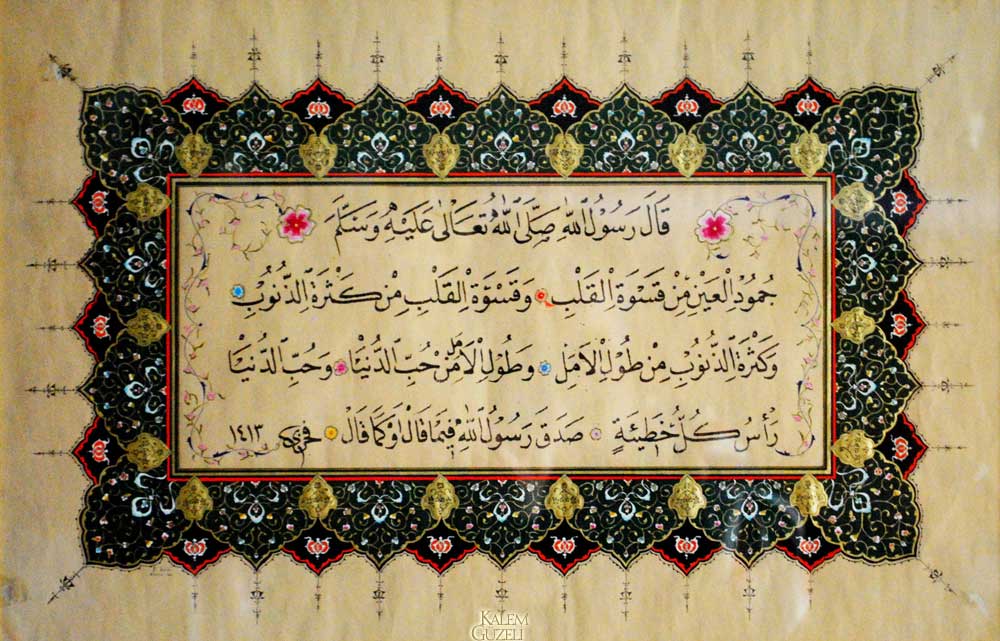 قَالَ رَسُولُ اللّٰهِ صَلَّى اللّٰهُ تَعَالٰى عَلَيْهِ وَسَلَّمَ
جُمُودُ الْعَيْنِ مِنْ قَسْوَةِ الْقَلْبِ وَقَسْوَةُ الْقَلْبِ مِنْ كَثْرَةِ الذُّنُوبِ
وَكَثْرَةُ الذُّنُوبِ مِنْ طُولِ الْاَمَلِ وَطُولُ الْاَمَلِ مِنْ حُبِّ الدُّنْيَا وَحُبُّ الدُّنْيَا
رَأْسُ كُلِّ خَطِيئَةٍ صَدَقَ رَسُولُ اللّٰهِ فِيمَا قَالَ اَوْ كَمَا قَالَ فخري ١٤١٣
KALEM
GÜZELİ